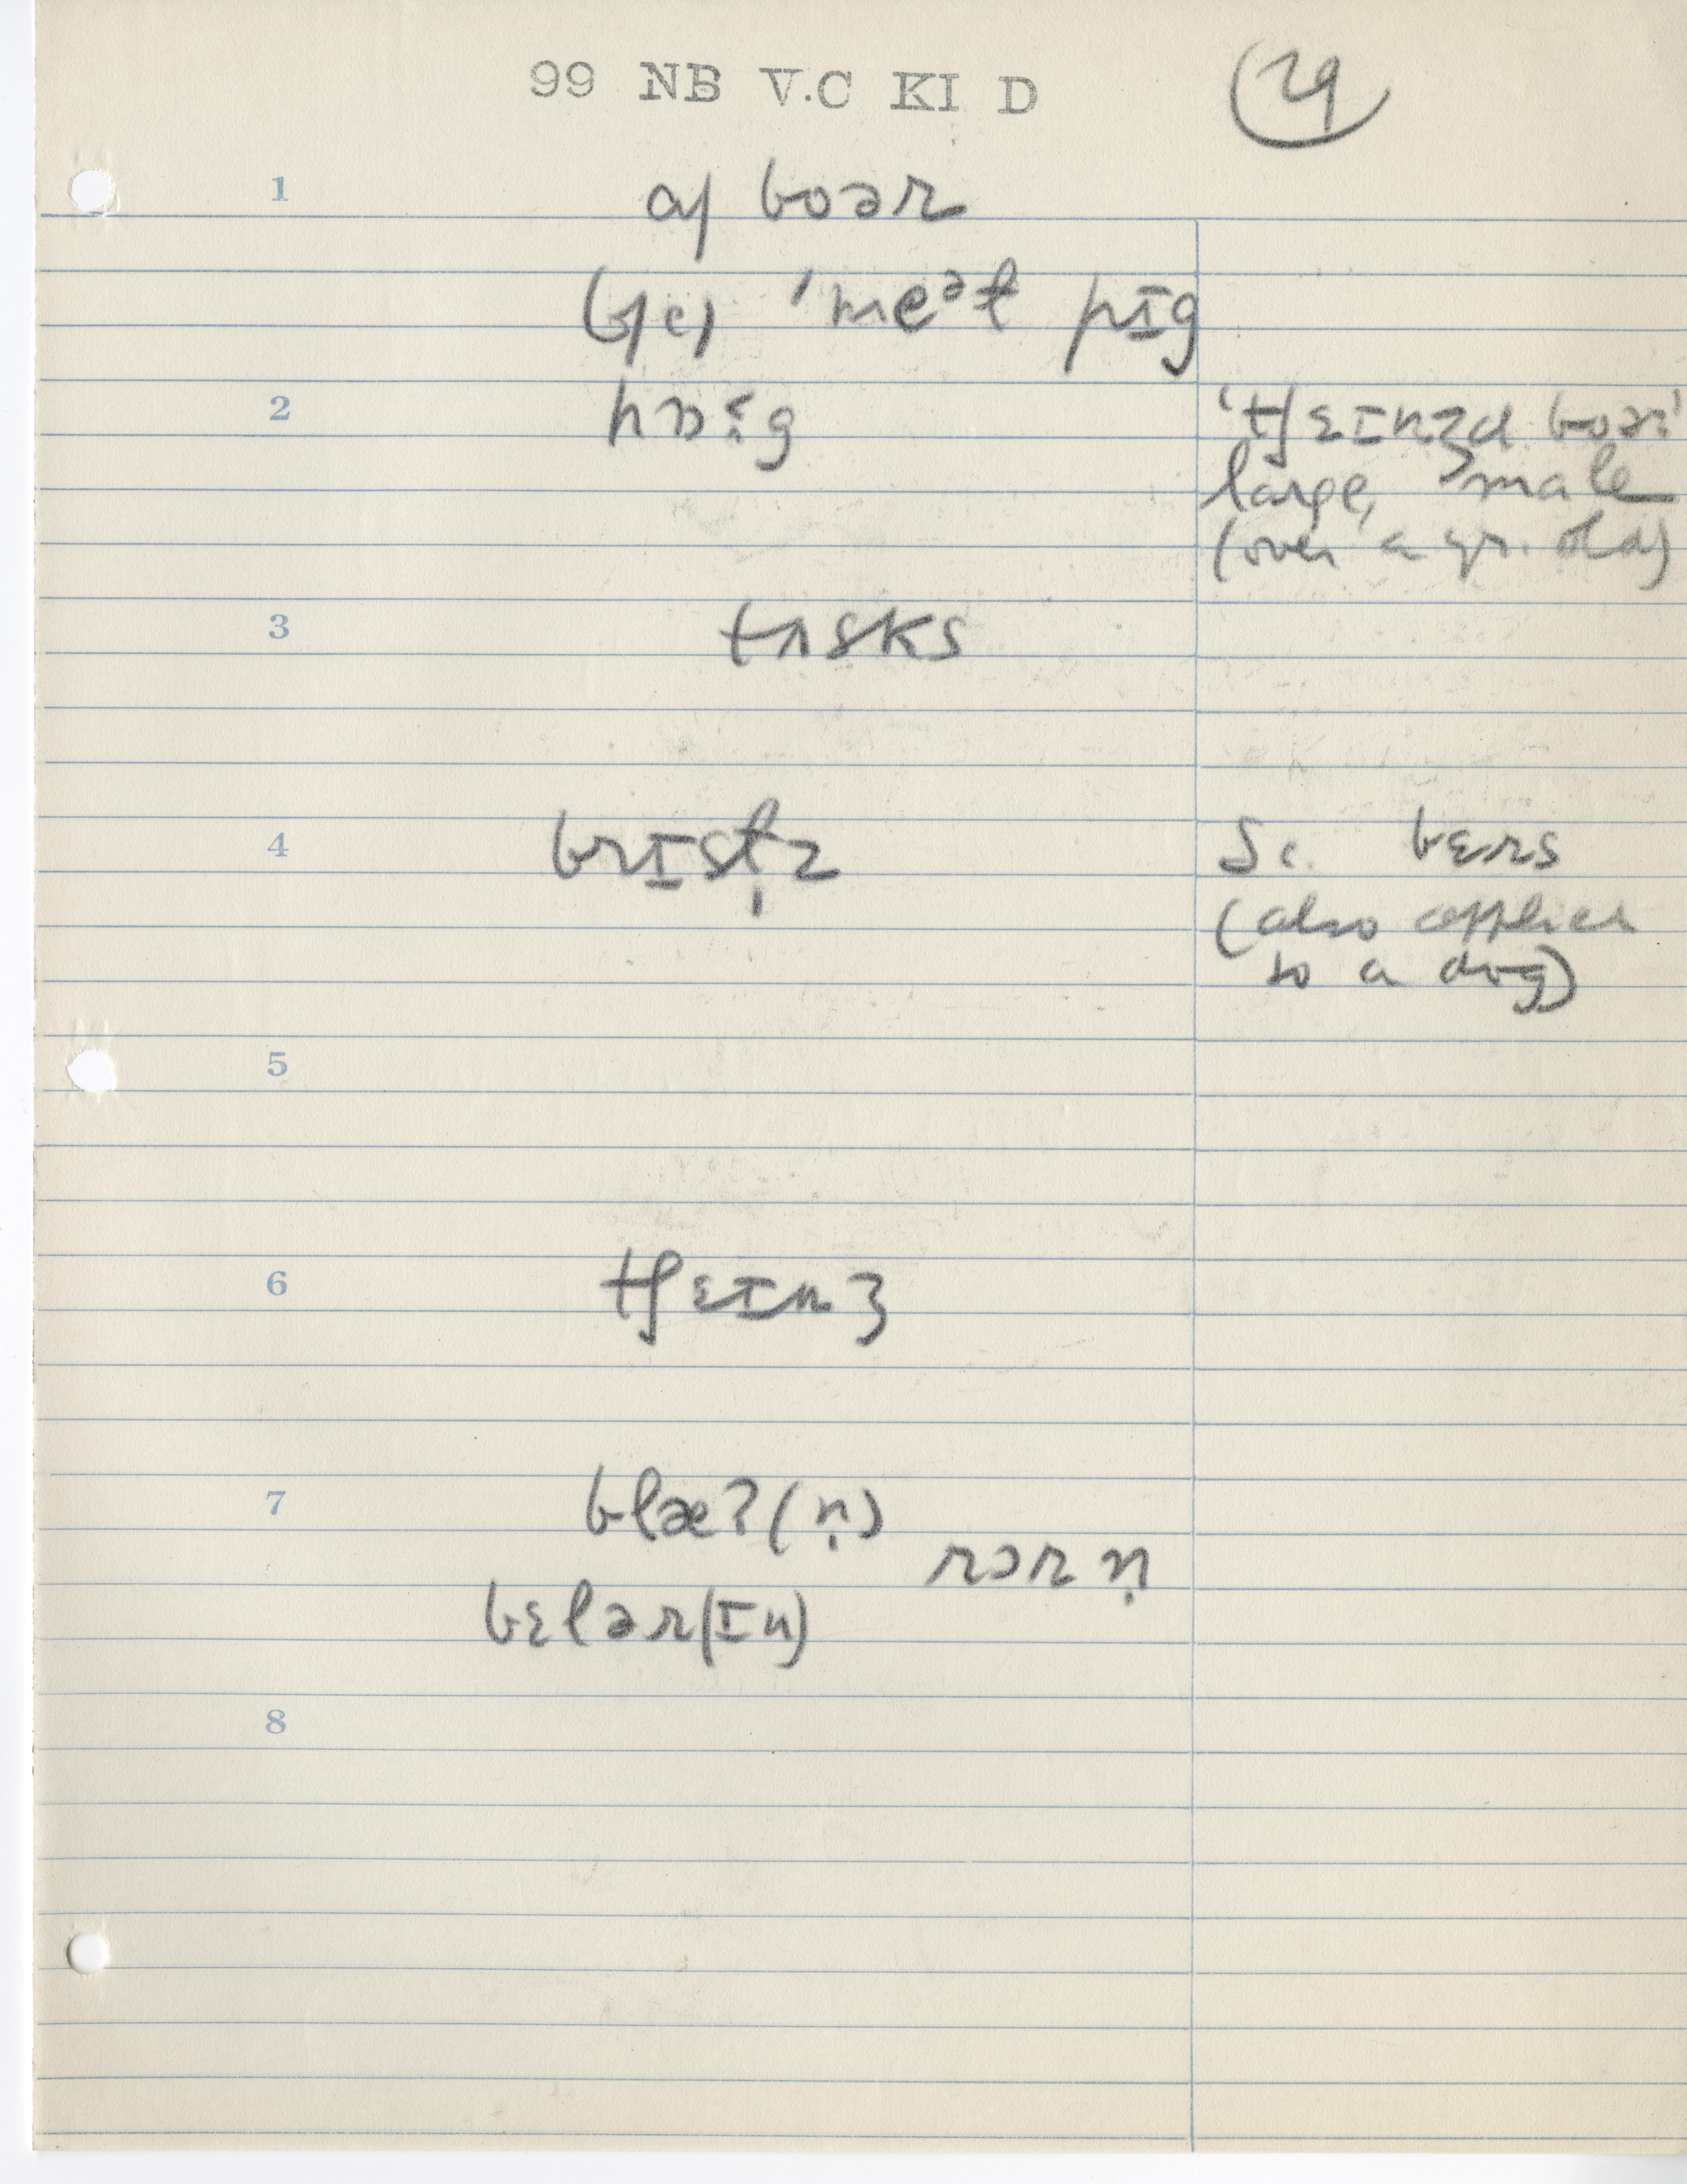 99 NB V.C KI D 24
1 a) boər
b, c) ˈmeᵊt pɪg
2 hɒˑg ˈtʃɛɪnʒd boər
large, male
(over a yr. old)
3 tʌsks
4 brɪsl̩z Sc. bɛrs
(also applies
to a dog)
5
6 tʃɛɪnʒ
7 blæʔ(n̩)
rɔr n̩
bɛlər(ɪn)
8